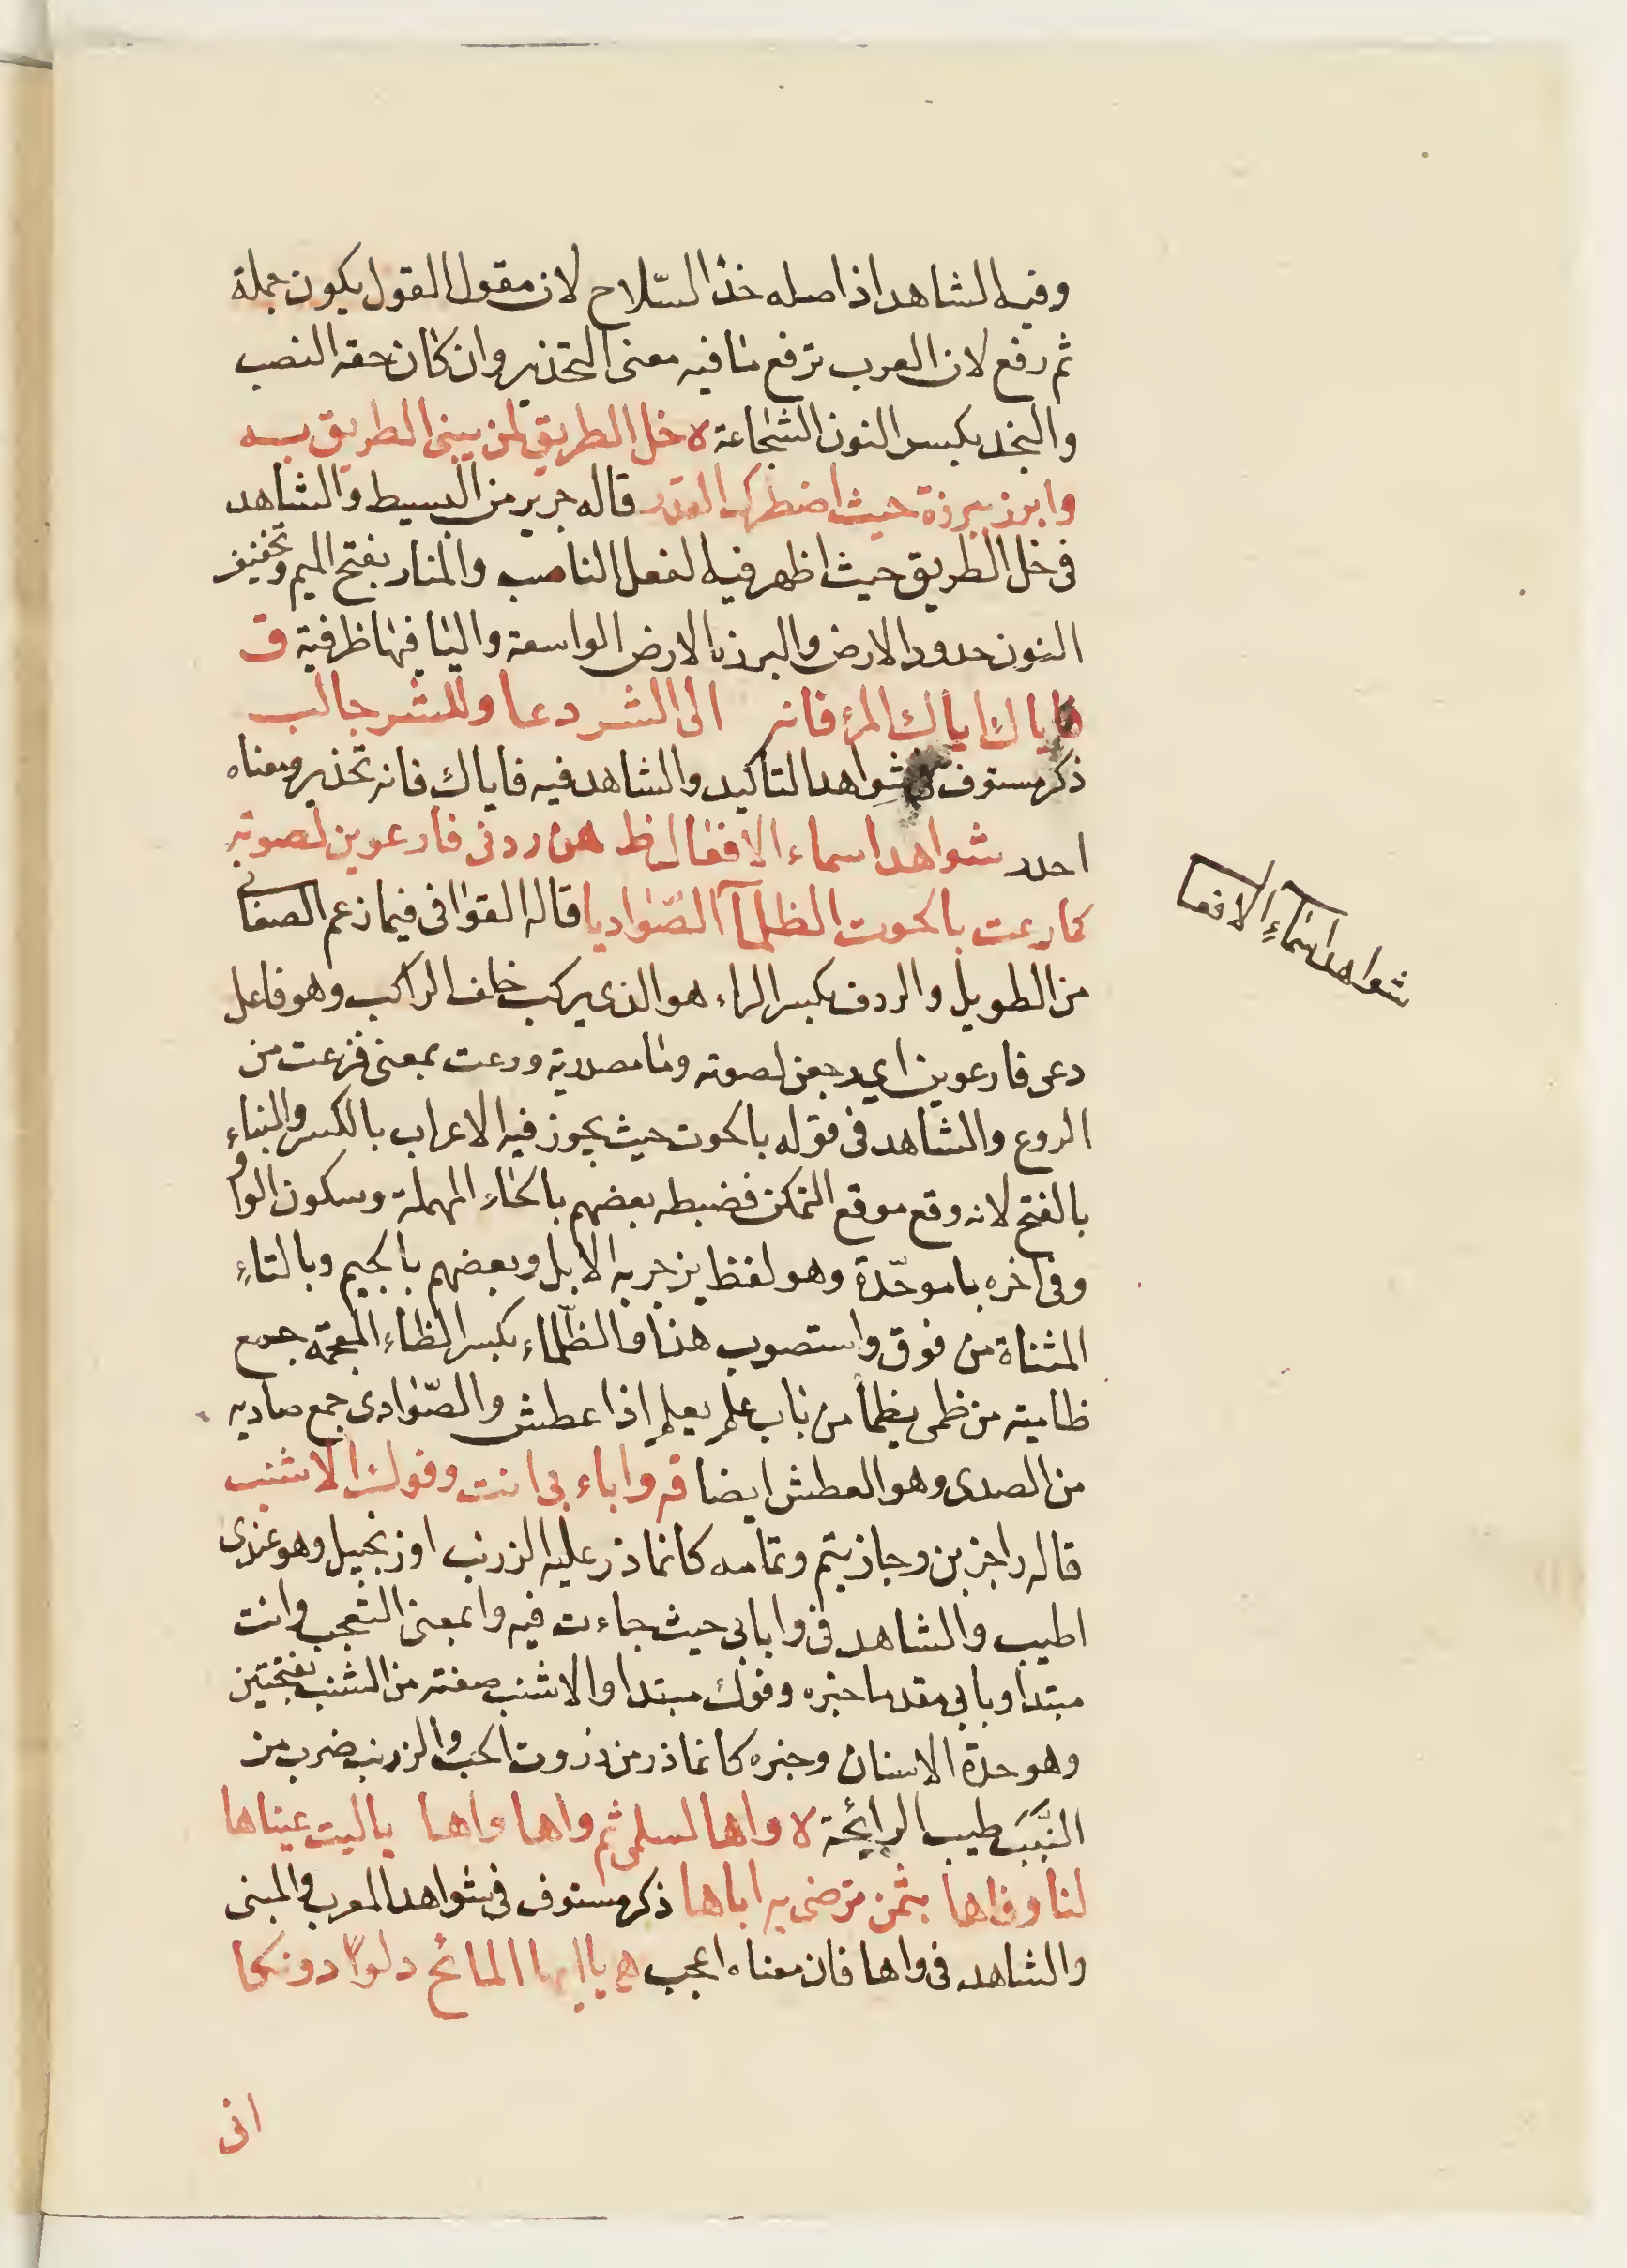 وفيه الشاهد اذ اصله خذ السّلاح لان مقول القول يكون جملة
ثم رفع لان العرب ترفع ما فيه معنى التحذير وان كان حقه النصب
والنجد بكسر النون الشجاعة لا خل الطريق لمن يبنى الطريق به
وابرز ببرزة حيث اضطرك القدر قاله جرير من البسيط والشاهد
فى خل الطريق حيث اظهر فيه الفعل الناصب والمنار بفتح الميم وتخفيف
النون حدود الارض والبرزة الارض الواسعة والبا فيها ظرفية ق
فاياك اياك المرء فانه الى الشر دعا وللشر جالب
ذكر مستوف فى شواهد التاكيد والشاهد فيه فاياك فانه تحذير ومعناه
احدر شواهد اسماء الافعال ظ هن ردفى فارعوين لصوته
كما رعت بالحوت الظمآ الصّواديا قاله القوافى فيما زعم الصغانى
شواهد اسماء الافعا
من الطويل والردف بكسر الراء هو الذى يركب خلف الراكب وهو فاعل
دعى فارعوين اي رجعن لصوته وما مصدرية ورعت بمعنى فزعت من
الروع والشاهد فى قوله بالحوت حيث يجوز فيه الاعراب بالكسر والبناء
بالفتح لانه وقع موقع التمكن فضبطه بعضهم بالحاء المهملة وسكون الواو
وفى اخره با موحّدة وهو لفظ يزجر به الابل وبعضهم بالجيم وبالتاءِ
المثناة من فوق واستصوب هذا والظّماء بكسر الظاء المعجمة جمع
ظامية من ظمى يظمأ من باب علم يعلم اذا عطش والصّوادى جمع صاديه
من الصدى وهو العطش ايضا قه وا باء بى انت وفوك الاشنب
قاله راجز بن وجاز يتم وتمامه كانما ذر عليه الزرنب او زنجبيل وهو عندى
اطيب والشاهد فى وا بابى حيث جاءت فيه وا بمعنى التعجب وانت
مبتدا وبابى مقدما خبره وفوك مبتدا والاشنب صفته من الشنب بفتحتين
وهو حدة الاسنان وخبره كانما ذر من ذروت الحب والزرنب ضرب من
النَّبَت طيب الرائحة لا واها لسلمى ثم واها واها ياليت عيناها
لنا وفاها بثمن نرضى به اباها ذكر مستوف فى شواهد المعرب والمبنى
والشاهد فى واها فان معناه اعجب هى يا ايها المائح دلوًا دونكما
انى